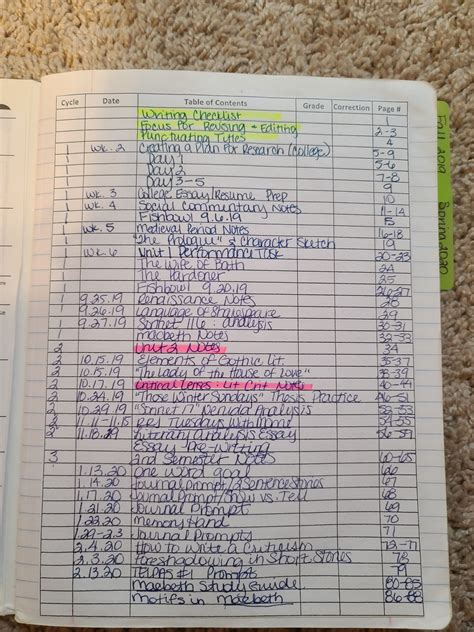 Cycle Date Table of Contents Grade Correction Page #
Writing Checklist 1
Focus for Revising + Editing 2-3
Punctuating Titles 4
1 WK. 2 Creating a Plan for Research (College) 5-9
1 Day 1 5-6
1 Day 2 7-8
1 Day 3-5 9
1 WK. 3 College Essay/Resume Prep 10
1 WK. 4 Social Commentary Notes 11-14
1 Fishbowl 9.6.19 15
1 WK. 5 Medieval Period Notes 16-18
1 "The Prologue" & Character Sketch 19
1 WK. 6 Unit 1 Performance Task 20-23
1 The Wife of Bath 24
1 The Pardoner 25
1 Fishbowl 9.20.19 26-27
1 9.25.19 Renaissance Notes 28
1 9.26.19 Language of Shakespeare 29
1 9.27.19 Sonnet 116: analysis 30-31
Macbeth Notes 32-33
2 Unit 2 Notes 34
2 10.15.19 Elements of Gothic Lit. 35-37
2 10.15.19 "The Lady of the House of Love" 38-39
2 10.17.19 Critical Lenses - Lit Crit Notes 40-44
2 10.24.19 "Those Winter Sundays" Thesis Practice
2 10.29.19 "Sonnet 17" Neruda Analysis
2 11.11-11.15 Tuesdays With Morrie 54-55
2 11.18.29 Literary Analysis Essay 56-59
Essay Pre-Writing
3 2nd Semester Notes 60-65
1.13.20 One Word Goal 66
1.14.20 Journal Prompt/3 Sentence Stories 67
1.17.20 Journal Prompt/Show vs. Tell 68
1.21.20 Journal Prompt 69
1.22.20 Memory Hand 70
1.29-2.3 Journal Prompts 71
2.4.20 How to Write a Criticism 72-77
2.3.20 Foreshadowing in Short Stories 78
2.13.20 #1 Prompt 79
Macbeth Study Guide 80-85
Motifs in Macbeth 86-88
Fall 2019
Spring 2020